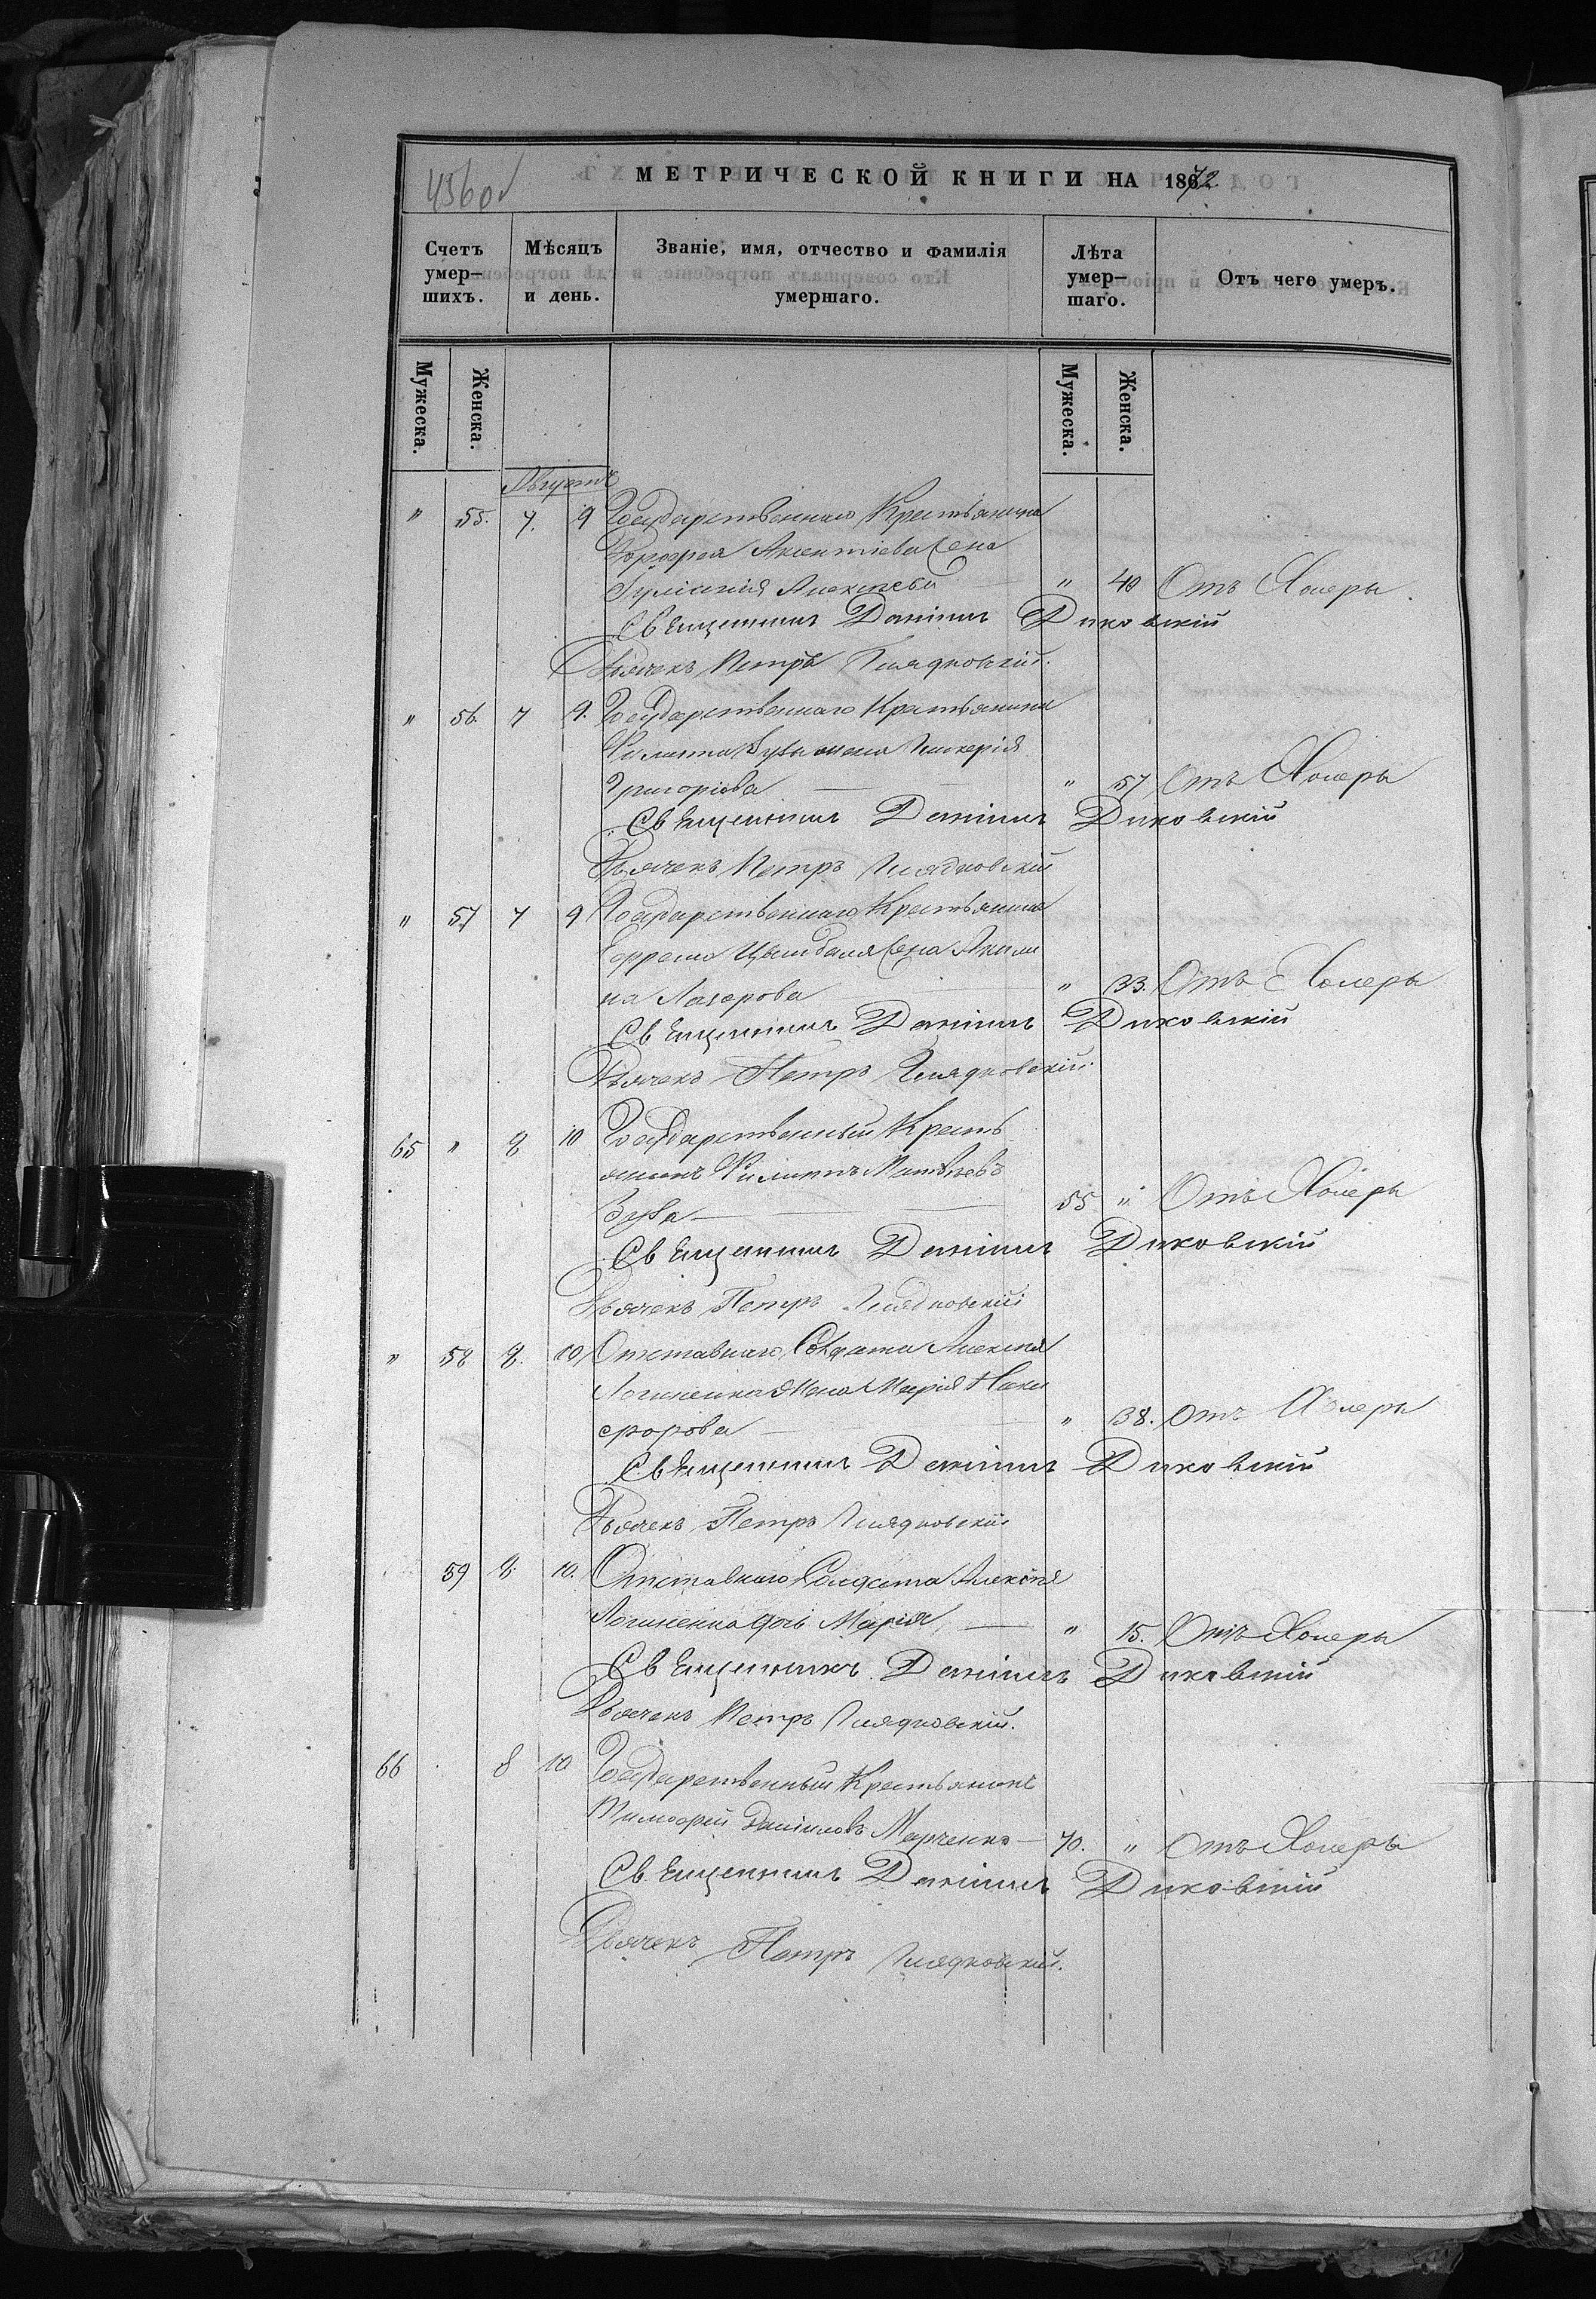 4560
МЕТРИЧЕСКОЙ КНИГИ НА 1872
Счетъ умер-шихъ.
Мѣсяцъ и день.
Званіе, имя, отчество и фамилія умершаго.
Лѣта умер-шаго.
Отъ чего умеръ.
Мужеска.
Женска.
Мужеска.
Женска.
Августъ
" 55. 7. 9 Государственнаго Крестьянина
Аксентіева жена
Алексѣева " 40 Отъ Холеры.
Священникъ Даніилъ Диковскій
Дьячекъ Петръ Гмядковскій.
" 56 7 9. Государственнаго Крестьянина
Филиппа Зубы жена Гликерія
Григоріова " 57 Отъ Холеры
Священникъ Даніилъ Диковскій
Дьячекъ Петръ Гмядковскій
" 57 7 9 Государственнаго Крестьянина
Ефрема Цымбала жена Акили
на Лазорова " 33. Отъ Холеры
Священникъ Даніилъ Диковскій
Дьячекъ Петръ Гмядковскій.
65 " 8 10 Государственный Кресть
янинъ Филиппъ Матвѣевъ
Зуба 55 " Отъ Холеры
Священникъ Даніилъ Диковскій
Дьячекъ Петръ Гмядковскій
" 58 8. 10 Отставнаго Солдата Алексѣя
Логиненка жена Марія Ники
форова " 38. Отъ Холеры
Священникъ Даніилъ Диковскій
Дьячекъ Петръ Гмядковскій
59 8. 10. Отставнаго Солдата Алексѣя
Логиненка дочь Марія, " 15. Отъ Холеры
Священникъ Даніилъ Диковскій
Дьячекъ Петръ Гмядковскій.
66 8 10 Государственный Крестьянинъ
Тимофей Даніиловъ Марченко 70. " Отъ Холеры
Священникъ Даніилъ Диковскій
Дьячекъ Петръ Гмядковскій.